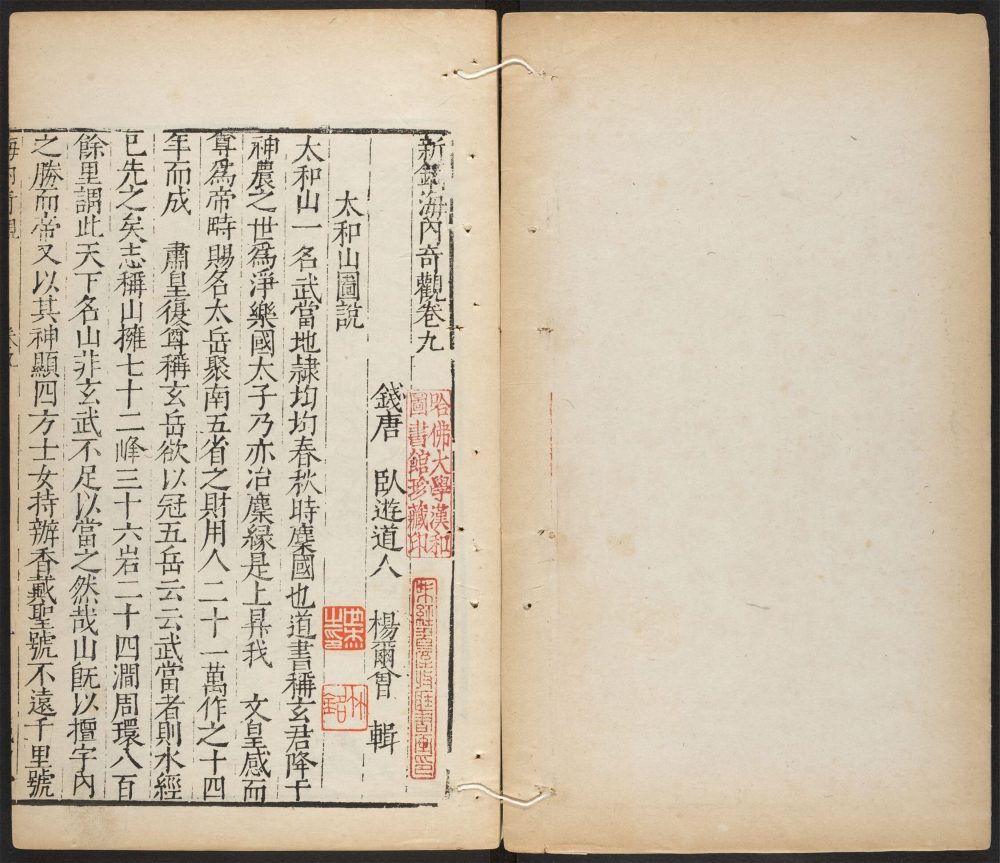 新鐫海內奇觀卷九
錢唐 臥遊道人 楊爾曾 輯
太和山圖說
太和山一名武當地隸均均春秋時麇國也道書稱玄君降于
神農之世爲淨樂國太子乃亦冶麇緣是上昇我 文皇感而
尊爲帝時賜名太岳聚南五省之財用人二十一萬作之十四
年而成 肅皇復尊稱玄岳欲以冠五岳云云武當者則水經
巳先之矣志稱山擁七十二峰三十六岩二十四澗周環八百
餘里謂此天下名山非玄武不足以當之然哉山旣以擅宇內
之勝而帝又以其神顯四方士女持辦香戴聖號不遠千里號
海內奇觀 卷九
哈佛大學漢和
圖書館珍藏印